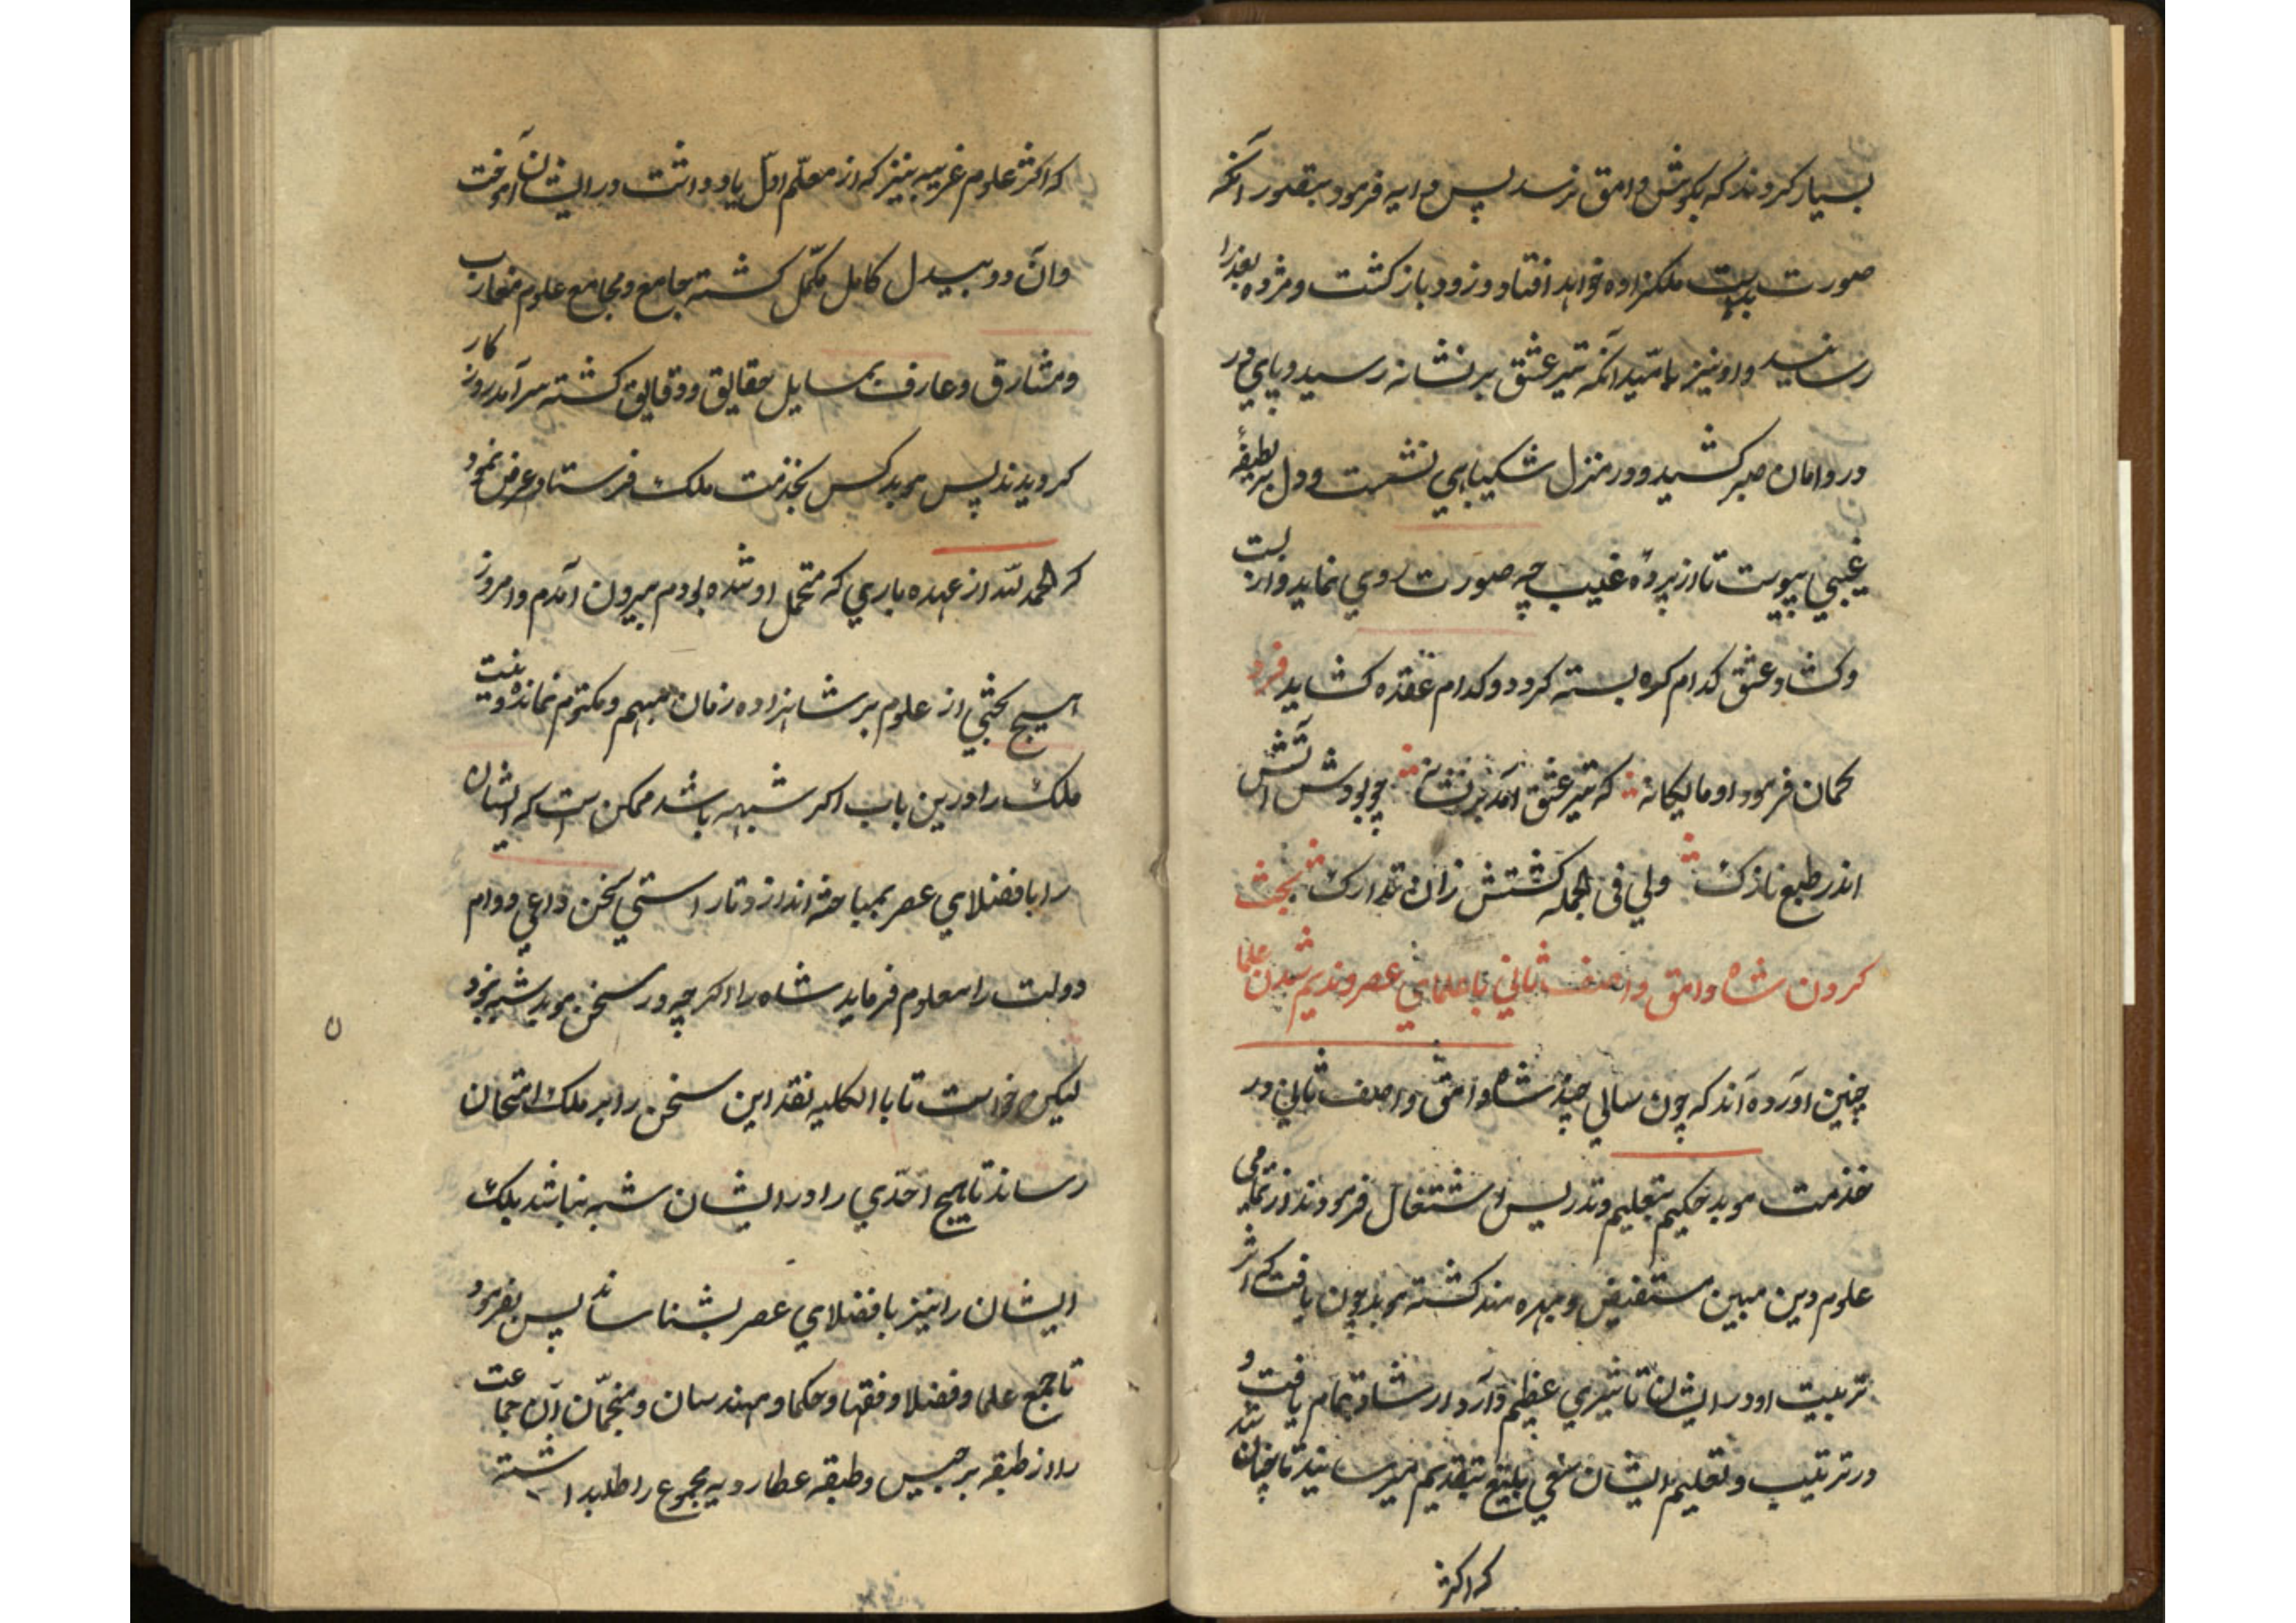 بسیار کردند که بکوش وامق نرسد پس دایه فرمود بتصور آنکه
صورت بدست ملکزاده خواهد افتاد و زود باز کشت و مژده بعذرا
رسانید و او نیز بامید آنکه تیر عشق بر نشانه رسید و پای در
در دامان صبر کشید و در منزل شکیبایی نشست و دل بر لطیفهٔ
غیبی پیوست تا از پردهٔ غیب چه صورت روی نماید و از بست
و کشاد عشق کدام کوه بسته کردد و کدام عقده کشاید فرد
کمان فرمود او مالیکانه که تیر عشق آمد بر نشانه چو بودش آتش
اندر طبع نازک ولی فی الجمله کشتش زان تدارک بحث
کردن شاه وامق و اصف ثانی با علمای عصر و ندیم شدن علما
چنین آورده‌اند که چون سالی چند شاه وامق و اصف ثانی در
خدمت موبد حکیم بتعلیم و تدریس اشتغال فرمودند از تمامی
علوم دین مبین مستفیض و بهره مند کشته موبد چون یافت که اثر
تربیت او در ایشان تاثیری عظیم دارد ارشاد تمام یافت و
در ترتیب و تعلیم ایشان سعی بلیغ بتقدیم میرسانید تا چنان شد
که اکثر
که اکثر علوم غریبه نیز که از معلم اول یاد داشت در ایشان آموخت
و آن دو بیدل کامل مکمل کشته جامع و مجامع علوم مغارب
و مشارق و عارف بمسایل حقایق و دقایق کشته سرآمد روزکار
کردیدند پس موبد کس بخدمت ملک فرستاد و عرض نمود
که الحمد لله از عهده باری که متحمل او شده بودم بیرون آمدم و امروز
هیچ بحثی از علوم بر شاهزاده زمان مبهم و مکتوم نمانده و نیت
ملک را درین باب اکر شبهه باشد ممکن است که ایشان
را با فضلای عصر بمباحثه اندازد تا راستی سخن داعی دوام
دولت را معلوم فرماید شاه را اکر چه در سخن موبد شبه نبود
لیکن خواست تا بالکلیه نقد این سخن را بر ملک امتحان
رساند تا هیچ احدی را در ایشان شبه نباشد بلک
ایشان را نیز با فضلای عصر بشناساند پس بفرمود
تا جمع علما و فضلا و فقها و حکما و مهندسان و منجمان آن جماعت
را از طبقه برجیس و طبقه عطاردیه مجموع را طلب داشته
ن